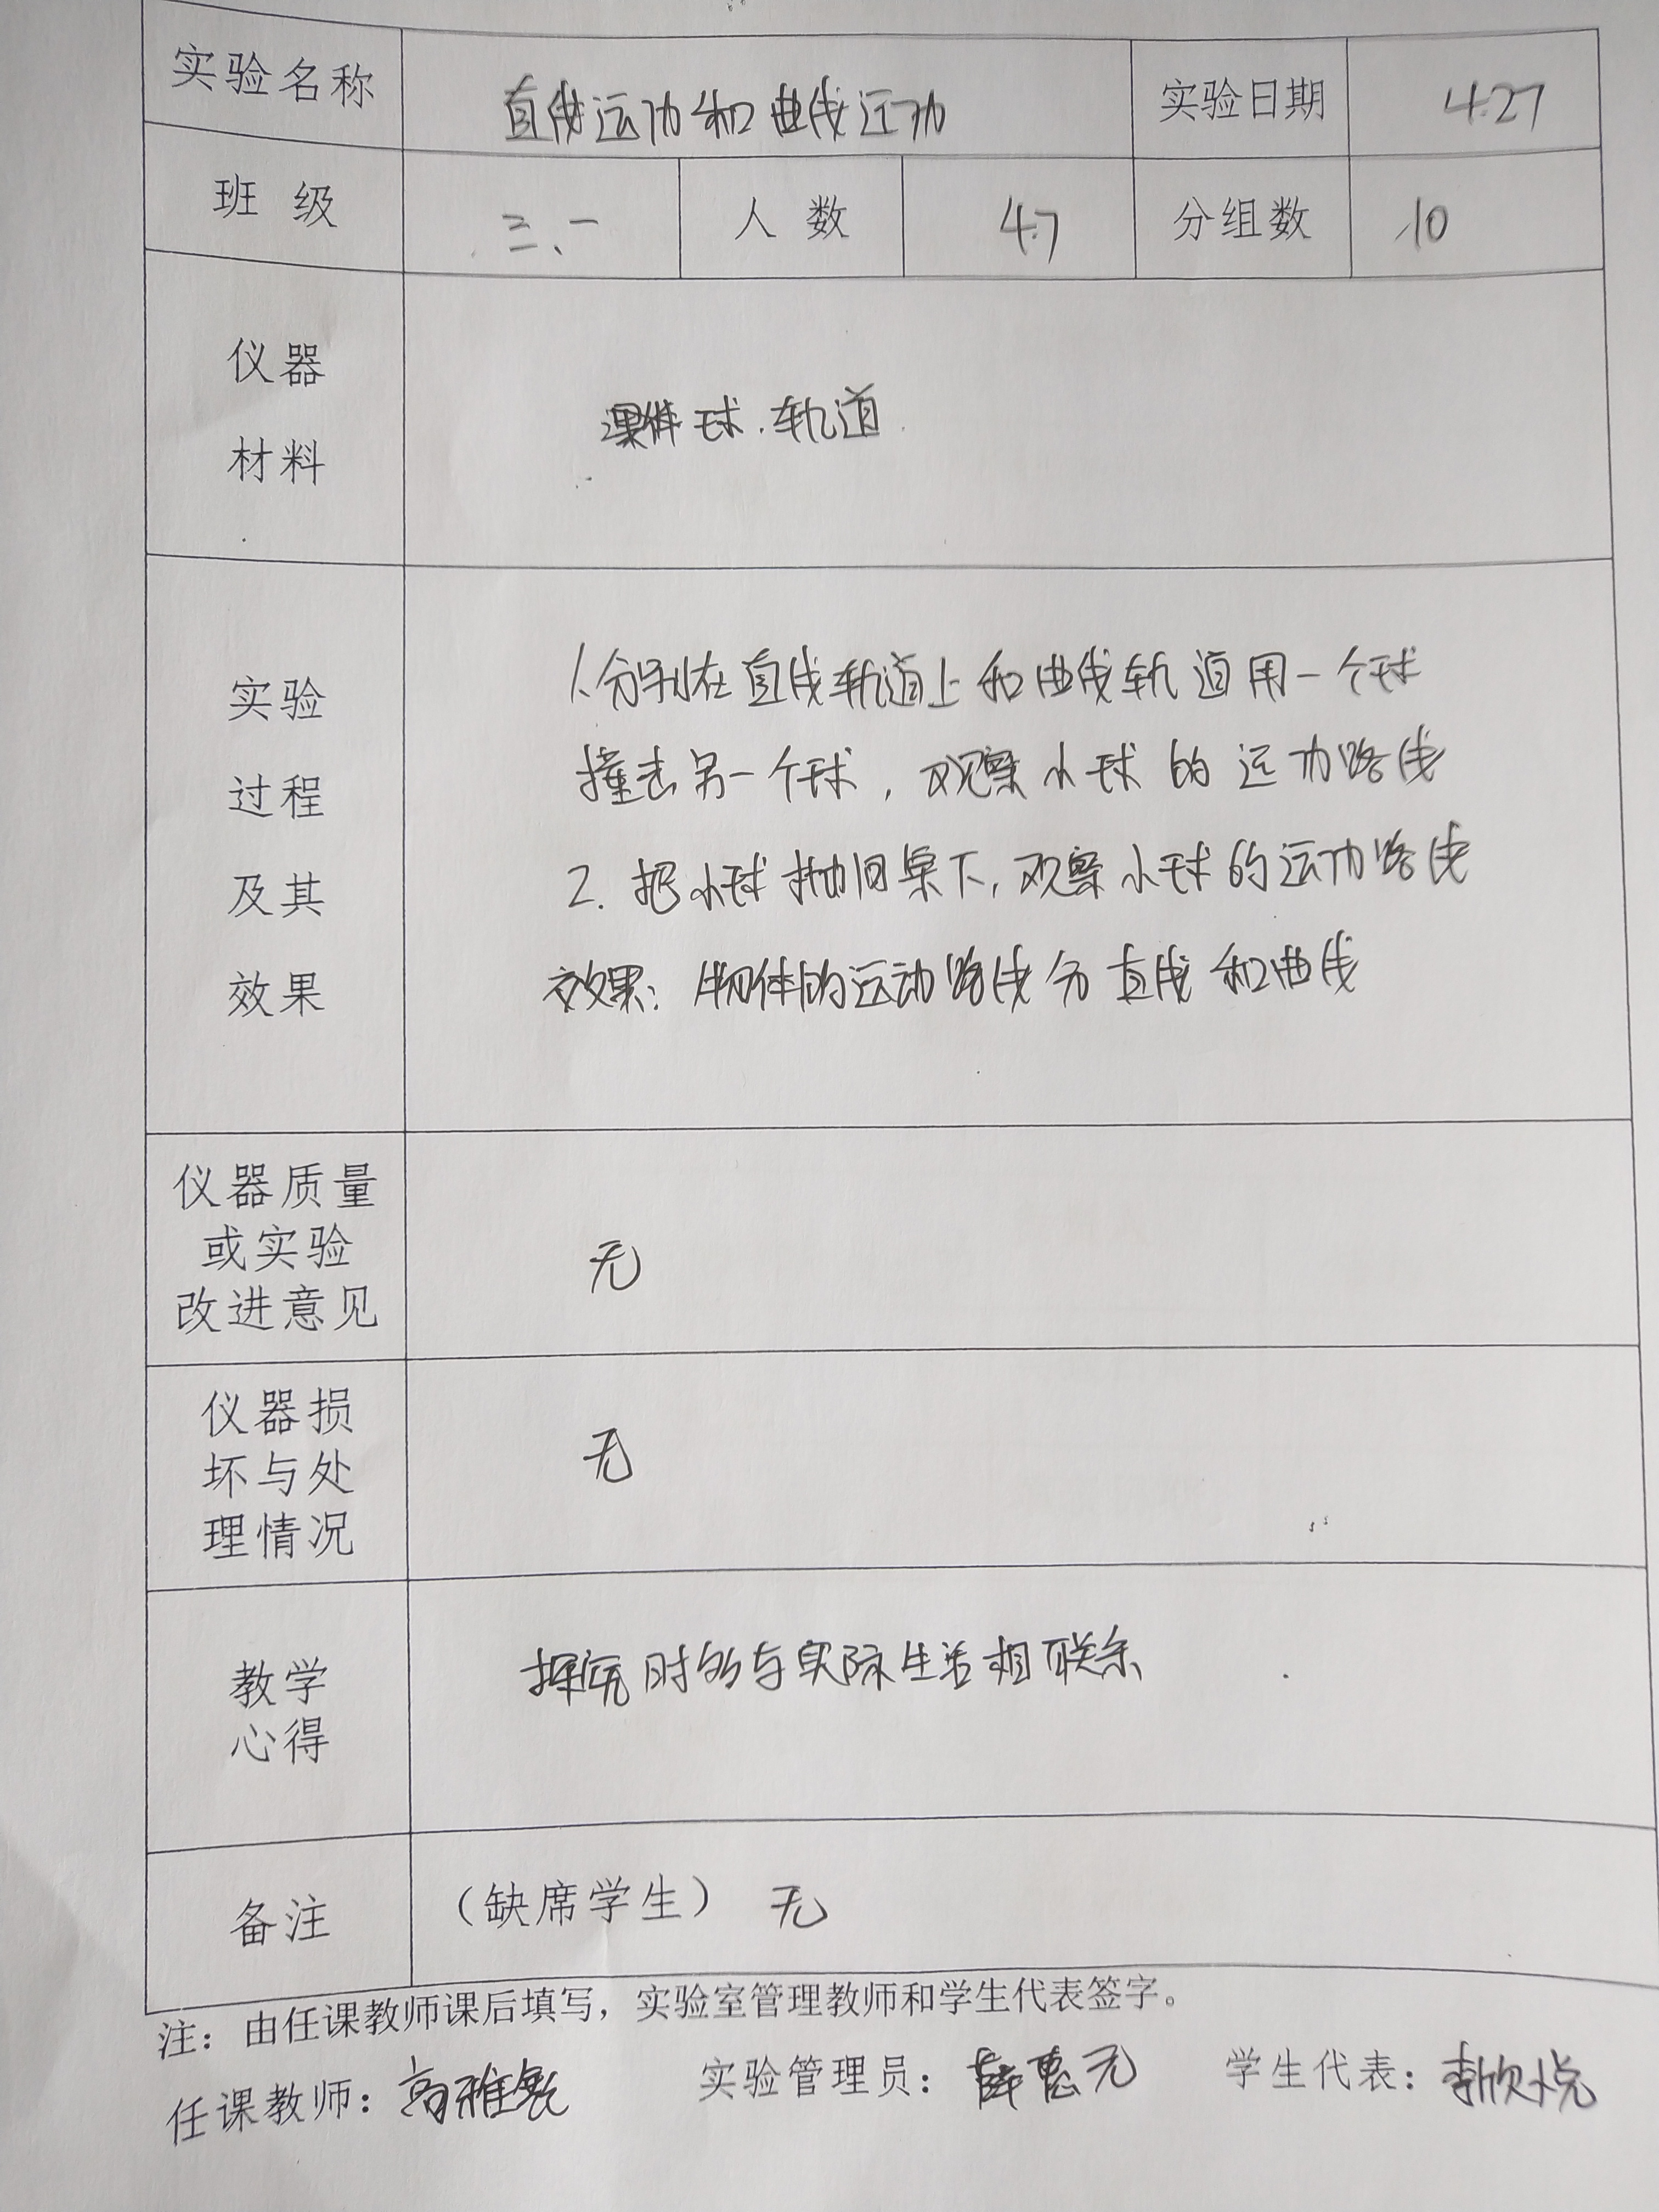 实验名称 直线运动和曲线运动 实验日期 4.27
班级 三、一 人数 47 分组数 10
仪器
材料
球.轨道
实验
过程
及其
效果
1.分别在直线轨道上和曲线轨道用一个球
撞击另一个球,观察小球的运动路线
2.把小球抛向桌下,观察小球的运动路线
效果:物体的运动路线分直线和曲线
仪器质量
或实验
改进意见
无
仪器损
坏与处
理情况
无
教学
心得
探究时多与实际生活相联系
备注 (缺席学生) 无
注:由任课教师课后填写,实验室管理教师和学生代表签字。
任课教师:高雅 实验管理员:薛惠元 学生代表:李欣悦